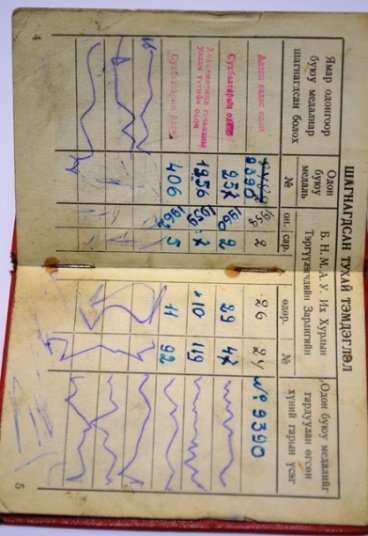 4
ШАГНАГДСАН ТУХАЙ ТЭМДЭГЛЭЛ
Ямар одонгоор буюу медалиар шагнагдсан болох
Одон буюу медаль №
Б. Н. М. А. У. Их Хурлын Тэргүүлэгчдийн Зарлигийн
он. сар. өдөр. №
Одон буюу медалийг гардуулан өгсөн хүний гарын үсэг
Алтан гадас одон 9390 1959 2 26 24 №: 9390
Сүхбаатарын одон 257 1960 2 29 47
Хөдөлмөрийн гавьяаны улаан тугийн одон 1956 1959 10 119
Сүхбаатарын одон 406 1962 5 11 92
5